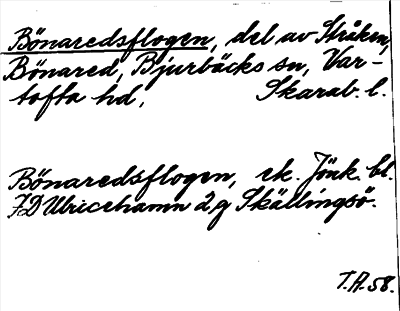 Bönaredsflogen, del av Stråken,
Bönared, Bjurbäcks sn, Var-
tofta hd, Skarab. l.
Bönaredsflogen, ek. Jönk. bl.
7D Ulricehamn 2,g Skällingsö.
T.A. 58.